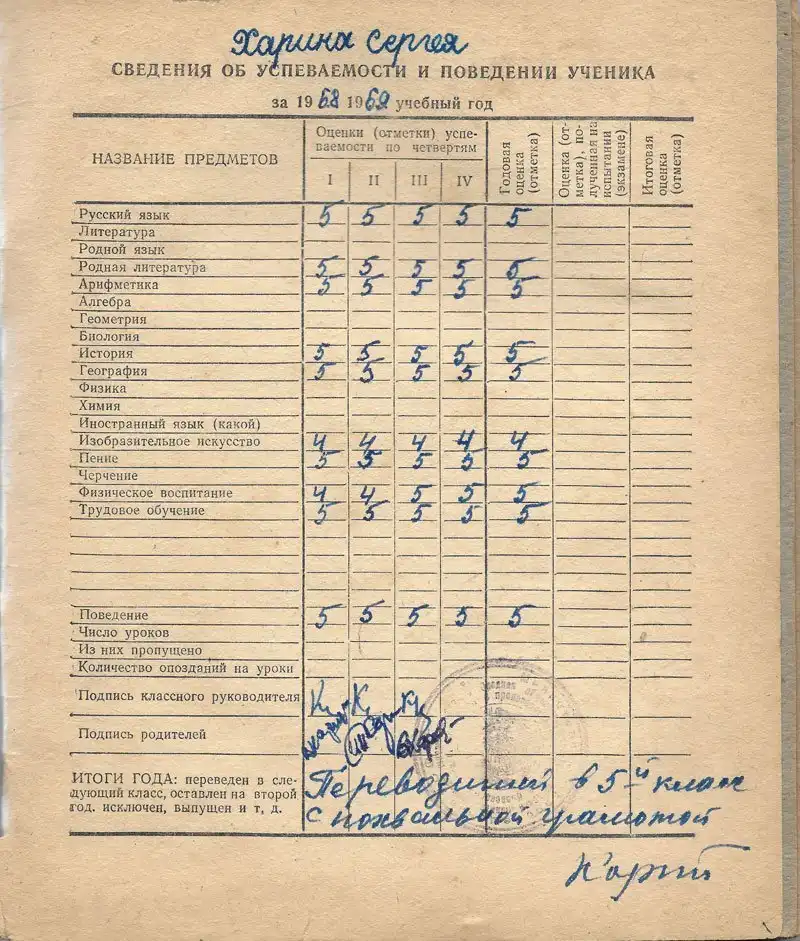 Харина Сергея
СВЕДЕНИЯ ОБ УСПЕВАЕМОСТИ И ПОВЕДЕНИИ УЧЕНИКА
за 1968 1969 учебный год
НАЗВАНИЕ ПРЕДМЕТОВ
Оценки (отметки) успе-
ваемости по четвертям
I II III IV
Годовая
оценка
(отметка)
Оценка (от-
метка), по-
лученная на
испытании
(экзамене)
Итоговая
оценка
(отметка)
Русский язык 5 5 5 5 5
Литература
Родной язык
Родная литература 5 5 5 5 5
Арифметика 5 5 5 5 5
Алгебра
Геометрия
Биология
История 5 5 5 5 5
География 5 5 5 5 5
Физика
Химия
Иностранный язык (какой)
Изобразительное искусство 4 4 4 4 4
Пение 5 5 5 5 5
Черчение
Физическое воспитание 4 4 5 5 5
Трудовое обучение 5 5 5 5 5
Поведение 5 5 5 5 5
Число уроков
Из них пропущено
Количество опозданий на уроки
Подпись классного руководителя
Подпись родителей
ИТОГИ ГОДА: переведен в сле-
дующий класс, оставлен на второй
год. исключен, выпущен и т, д.
Переводится в 5й класс
с похвальной грамотой